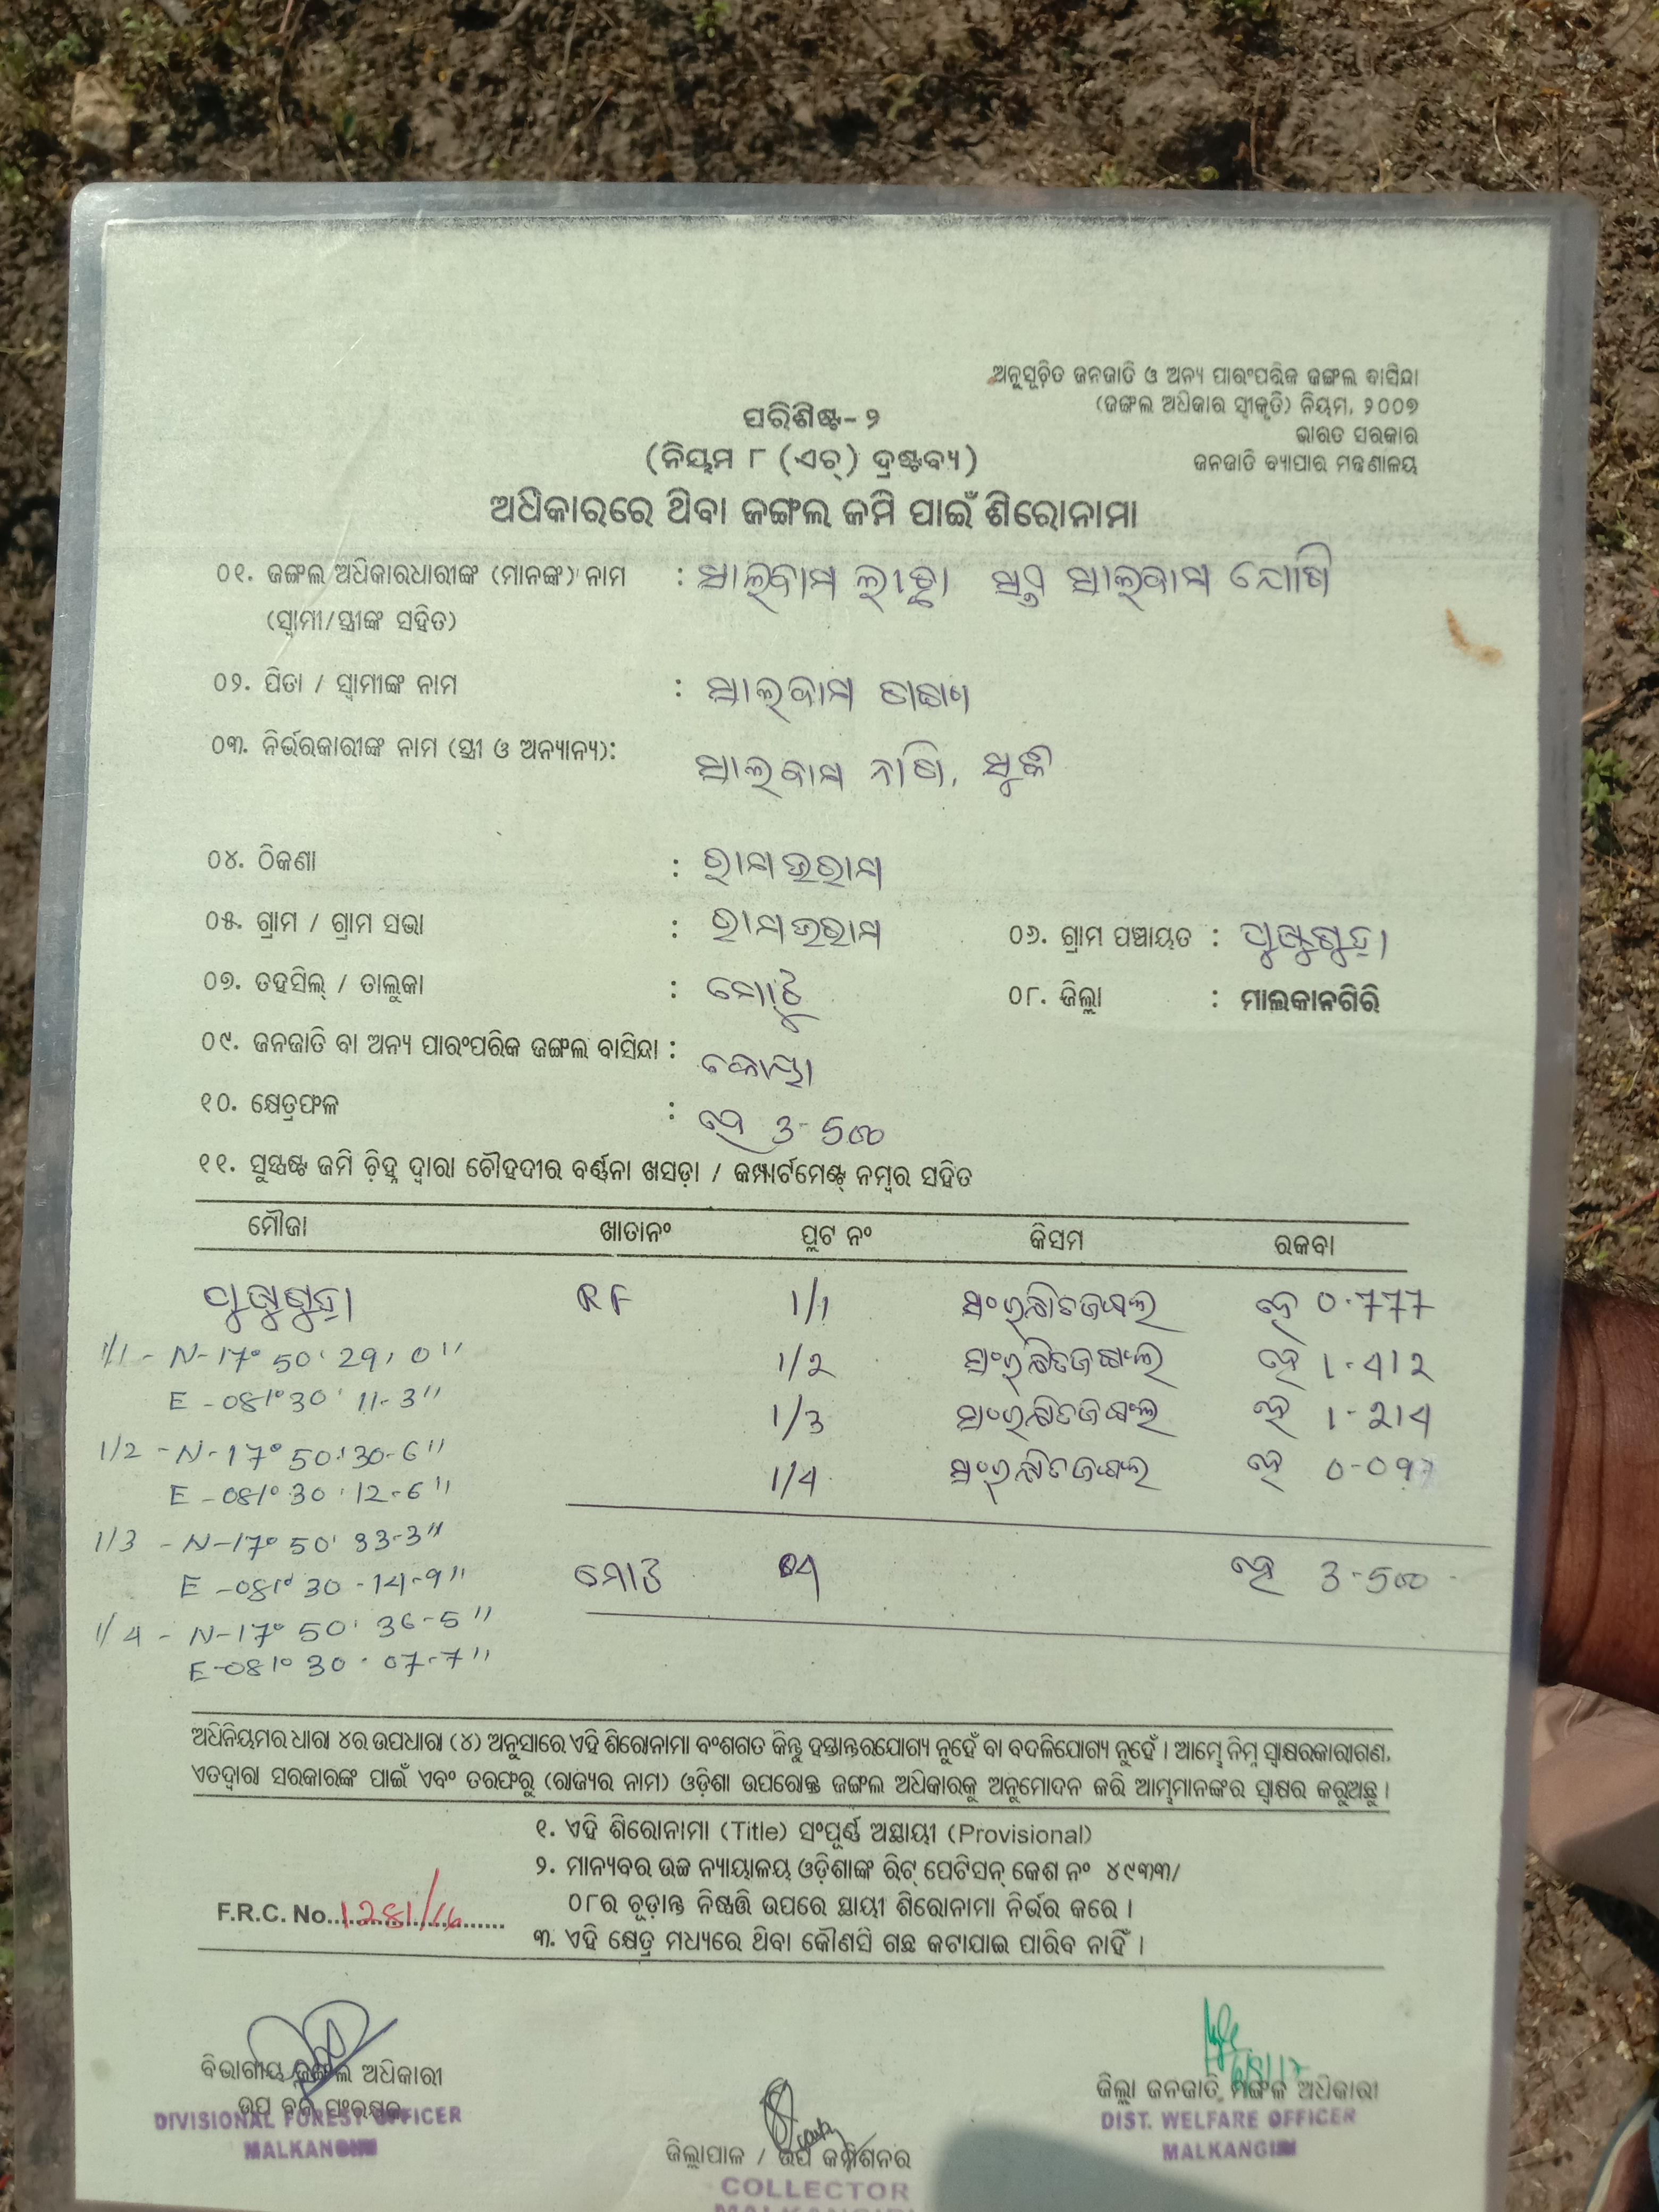 ଅନୁସୂଚିତ ଜନଜାତି ଓ ଅନ୍ୟ ପାରଂପରିକ ଜଙ୍ଗଲ ବାସିନ୍ଦା
(ଜଙ୍ଗଲ ଅଧିକାର ସ୍ୱୀକୃତି) ନିୟମ, ୨୦୦୭
ଭାରତ ସରକାର
ଜନଜାତି ବ୍ୟାପାର ମନ୍ତ୍ରଣାଳୟ
ପରିଶିଷ୍ଟ-୨
(ନିୟମ ୮ (ଏଚ୍) ଦ୍ରଷ୍ଟବ୍ୟ)
ଅଧିକାରରେ ଥିବା ଜଙ୍ଗଲ ଜମି ପାଇଁ ଶିରୋନାମା
୦୧. ଜଙ୍ଗଲ ଅଧିକାରଧାରୀଙ୍କ (ମାନଙ୍କ) ନାମ :
(ସ୍ୱାମୀ/ସ୍ତ୍ରୀଙ୍କ ସହିତ)
୦୨. ପିତା / ସ୍ୱାମୀଙ୍କ ନାମ :
୦୩. ନିର୍ଭରକାରୀଙ୍କ ନାମ (ସ୍ତ୍ରୀ ଓ ଅନ୍ୟାନ୍ୟ):
୦୪. ଠିକଣା :
୦୫. ଗ୍ରାମ / ଗ୍ରାମ ସଭା : ୦୬. ଗ୍ରାମ ପଞ୍ଚାୟତ :
୦୭. ତହସିଲ୍ / ତାଲୁକା : ମୋଟୁ ୦୮. ଜିଲ୍ଲା : ମାଲକାନଗିରି
୦୯. ଜନଜାତି ବା ଅନ୍ୟ ପାରଂପରିକ ଜଙ୍ଗଲ ବାସିନ୍ଦା : କୋୟା
୧୦. କ୍ଷେତ୍ରଫଳ : ହେ 3-500
୧୧. ସୁସ୍ପଷ୍ଟ ଜମି ଚିହ୍ନ ଦ୍ୱାରା ଚୌହଦୀର ବର୍ଣ୍ଣନା ଖସଡ଼ା / କମ୍ପାର୍ଟମେଣ୍ଟ ନମ୍ବର ସହିତ
ମୌଜା ଖାତାନଂ ପ୍ଲଟ ନଂ କିସମ ରକବା
RF 1/1 ସଂରକ୍ଷିତଜଙ୍ଗଲ ହେ 0.777
1/1 - N-17° 50' 29.0"
1/2 ସଂରକ୍ଷିତଜଙ୍ଗଲ ହେ 1-412
E-081° 30' 11-3"
1/3 ସଂରକ୍ଷିତଜଙ୍ଗଲ ହେ 1-214
1/2 - N-17° 50' 30-6"
1/4 ସଂରକ୍ଷିତଜଙ୍ଗଲ ହେ 0-097
E-081° 30' 12-6"
1/3 - N-17° 50' 33-3"
E-081° 30-14-9" ମୋଟ ହେ 3-500
1/4 - N-17° 50' 36-5"
E-081° 30- 07-7"
ଅଧିନିୟମର ଧାରା ୪ର ଉପଧାରା (୪) ଅନୁସାରେ ଏହି ଶିରୋନାମା ବଂଶଗତ କିନ୍ତୁ ହସ୍ତାନ୍ତରଯୋଗ୍ୟ ନୁହେଁ ବା ବଦଳିଯୋଗ୍ୟ ନୁହେଁ । ଆମ୍ଭେ ନିମ୍ନ ସ୍ୱାକ୍ଷରକାରୀଗଣ,
ଏତଦ୍ୱାରା ସରକାରଙ୍କ ପାଇଁ ଏବଂ ତରଫରୁ (ରାଜ୍ୟର ନାମ) ଓଡ଼ିଶା ଉପରୋକ୍ତ ଜଙ୍ଗଲ ଅଧିକାରକୁ ଅନୁମୋଦନ କରି ଆମ୍ଭମାନଙ୍କର ସ୍ୱାକ୍ଷର କରୁଅଛୁ ।
୧. ଏହି ଶିରୋନାମା (Title) ସଂପୂର୍ଣ୍ଣ ଅସ୍ଥାୟୀ (Provisional)
୨. ମାନ୍ୟବର ଉଚ୍ଚ ନ୍ୟାୟାଳୟ ଓଡ଼ିଶାଙ୍କ ରିଟ୍ ପେଟିସନ୍ କେଶ ନଂ ୪୯୩୩/
୦୮ର ଚୂଡ଼ାନ୍ତ ନିଷ୍ପତ୍ତି ଉପରେ ସ୍ଥାୟୀ ଶିରୋନାମା ନିର୍ଭର କରେ ।
F.R.C. No. 1281/16
୩. ଏହି କ୍ଷେତ୍ର ମଧ୍ୟରେ ଥିବା କୌଣସି ଗଛ କଟାଯାଇ ପାରିବ ନାହିଁ ।
ବିଭାଗୀୟ ଜଙ୍ଗଲ ଅଧିକାରୀ
ଉପ ବନ ସଂରକ୍ଷକ
DIVISIONAL FOREST OFFICER
MALKANGIRI
ଜିଲ୍ଲାପାଳ / ଉପ କମିଶନର
COLLECTOR
MALKANGIRI
ଜିଲ୍ଲା ଜନଜାତି ମଙ୍ଗଳ ଅଧିକାରୀ
DIST. WELFARE OFFICER
MALKANGIRI